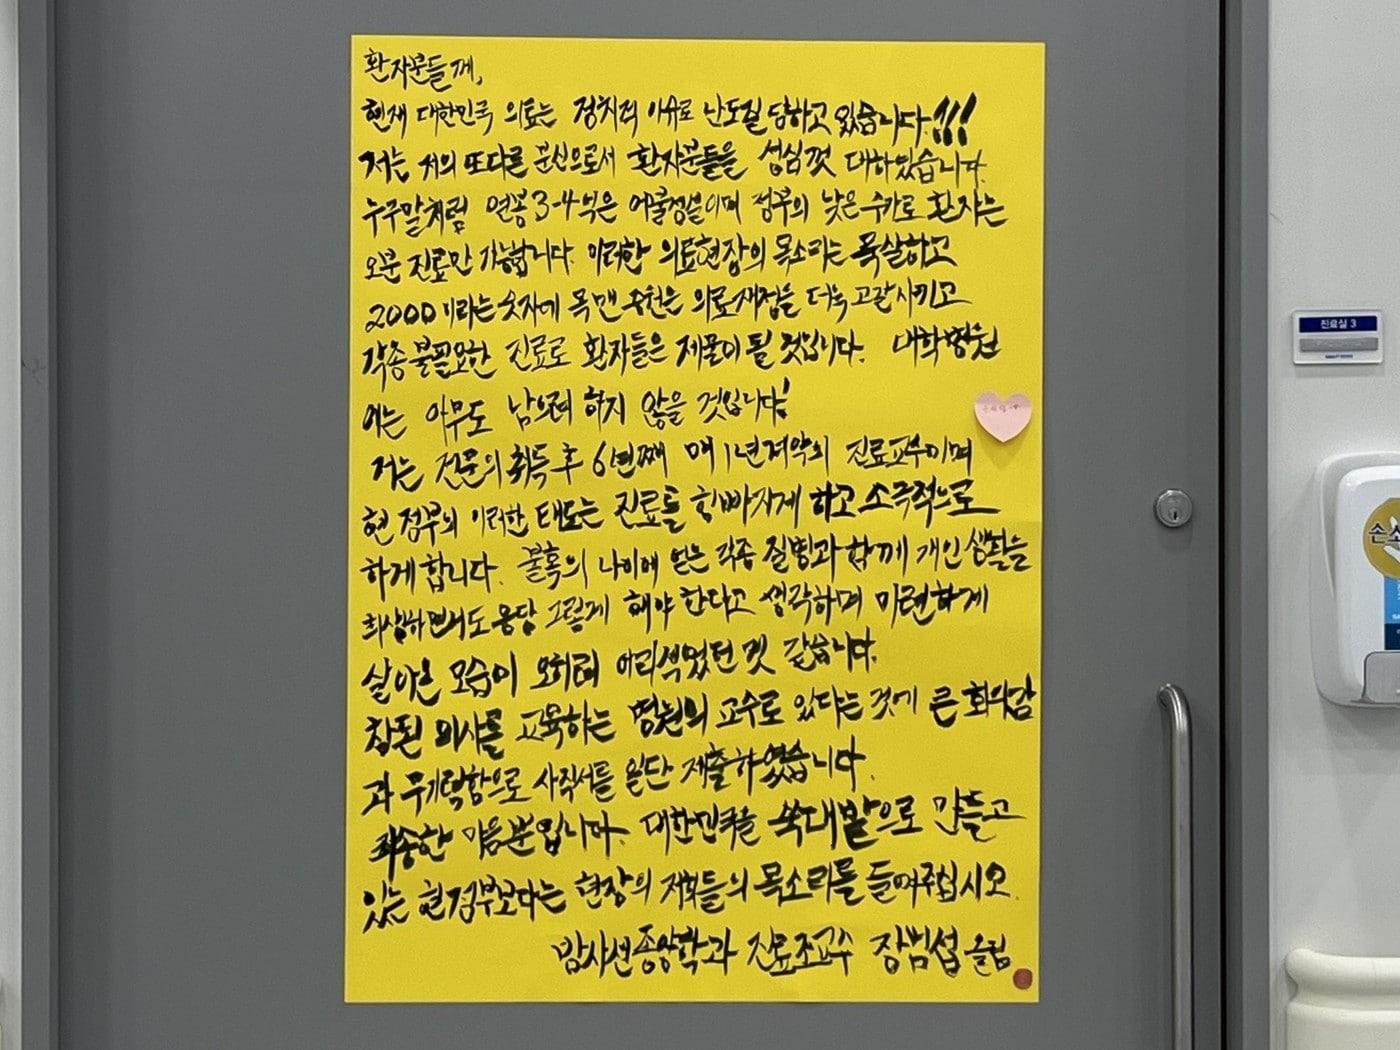 환자분들께,
현재 대한민국 의료는 정치적 이슈로 난도질 당하고 있습니다.!!!
저는 저의 또다른 분신으로서 환자분들을 성심껏 대하였습니다.
누구말처럼 연봉 3-4억은 어불성설이며 정부의 낮은 수가로 환자는
오분 진료만 가능합니다. 이러한 의료현장의 목소리는 묵살하고
2000이라는 숫자에 목맨 증원은 의료재정을 더욱 고갈시키고
각종 불필요한 진료로 환자들은 제물이 될 것입니다. 대학병원
에는 아무도 남으려 하지 않을 것입니다!
저는 전문의 취득 후 6년째 매1년 계약의 진료교수이며
현 정부의 이러한 태도는 진료를 힘빠지게 하고 소극적으로
하게 합니다. 불혹의 나이에 얻은 각종 질병과 함께 개인 생활을
희생하면서도 응당 그렇게 해야 한다고 생각하며 미련하게
살아온 모습이 오히려 어리석었던 것 같습니다.
참된 의사를 교육하는 병원의 교수로 있다는 것에 큰 회의감
과 무기력함으로 사직서를 일단 제출하였습니다.
죄송한 마음뿐입니다. 대한민국을 쑥대밭으로 만들고
있는 현정부보다는 현장의 저희들의 목소리를 들어주십시오.
방사선종양학과 진료조교수 장범섭 올림
진료실 3
손소